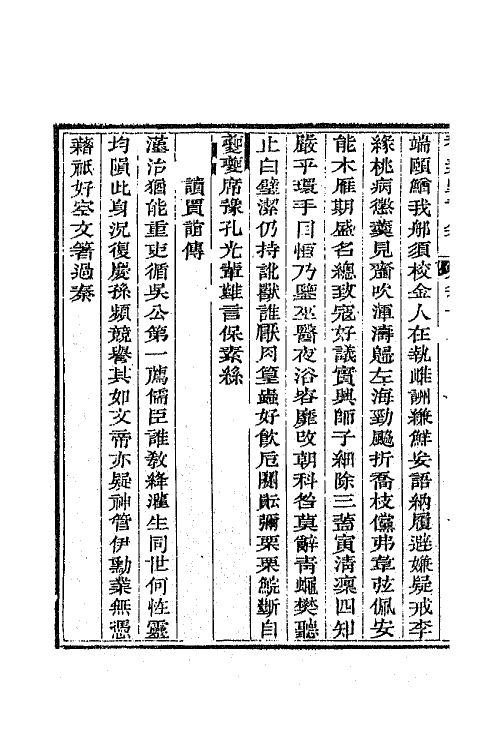 端頤鮹我郍須校金人在執雌訓維鮮安語納履遠嫌疑戒李
緣桃病懲羮見齏吹渾濤歸左海勁颷折喬枝儻弗韋弦佩安
能木雁期盛名總致寇好議實興師子細除三蓋寅淸稟四知
嚴平環手目恒乃鑒巫醫夜浴岧靡改朝科咎莫辭靑蠅樊聽
止白璧潔仍持訛獸誰厭肉篁蟲好飮卮關眃彌栗栗鯇斷自
夔夔席豫孔光輩難言保素絲
讀賈誼傳
漢治猶能重吏循吳公第一薦儒臣誰敎絳灌生同世何恠靈
均隕此身況復慶孫頻競譽其如文帝亦疑神管伊勳業無憑
藉祇好空文箸過秦